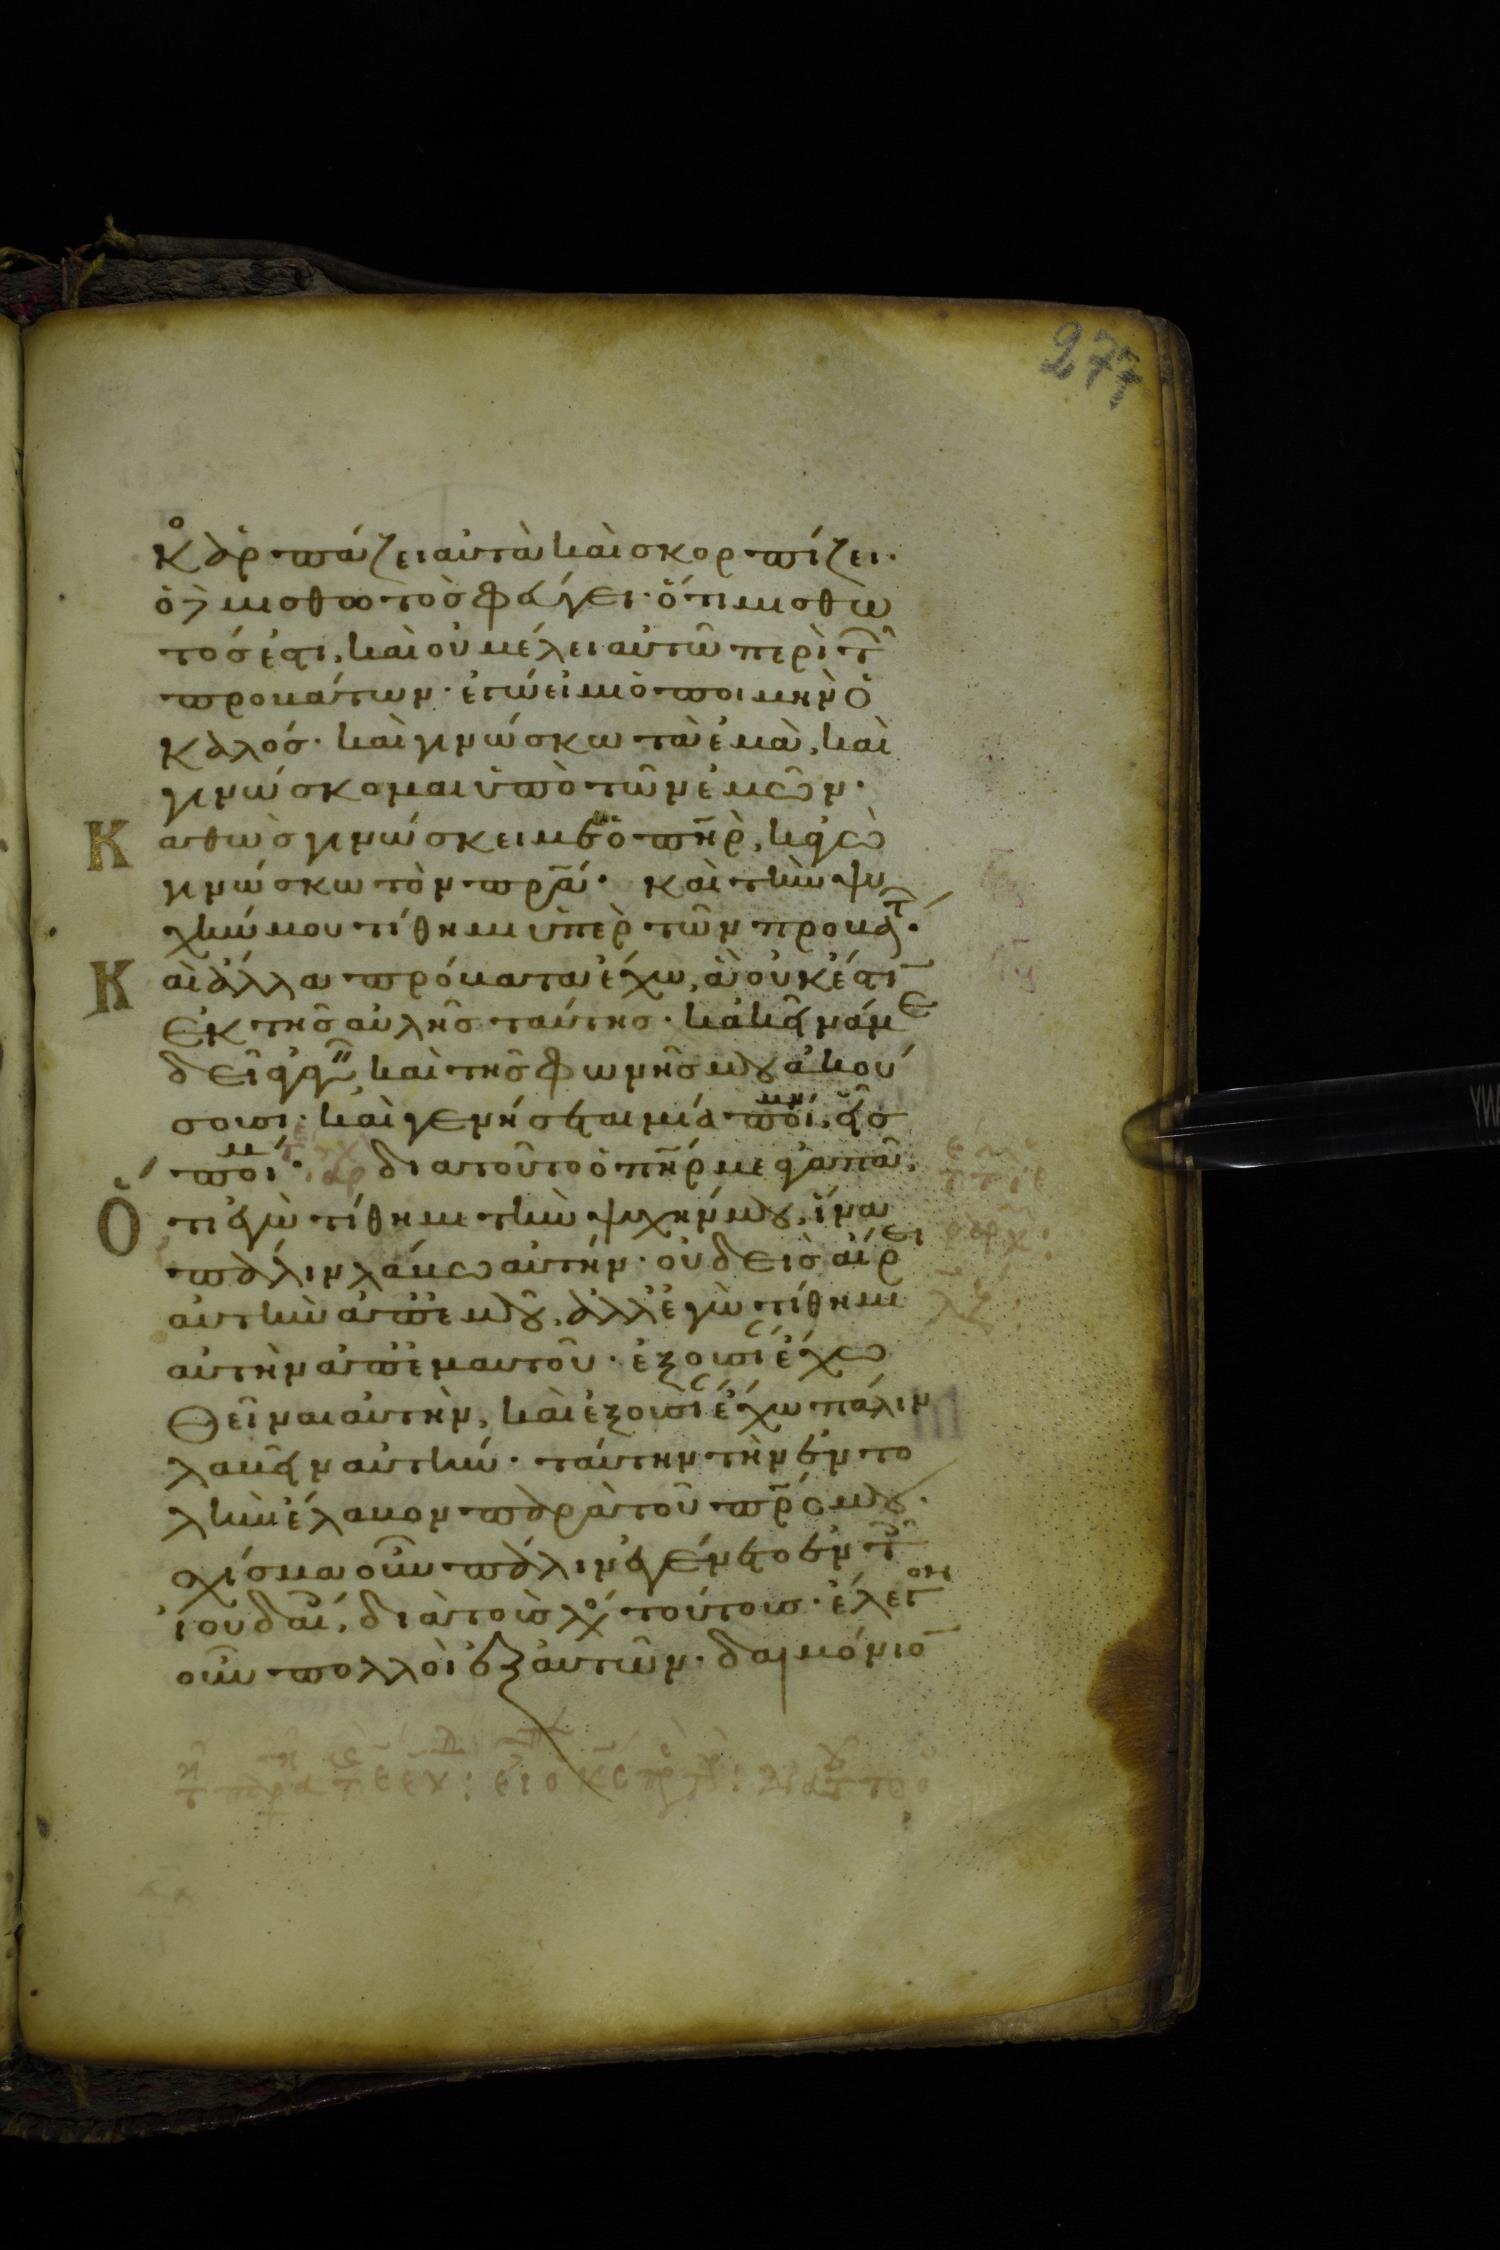 277
κ ἁρπάζει αὐτὰ καὶ σκορπίζει·
ὁ δὲ μισθωτὸσ φεύγει· ὅτι μισθω
τόσ ἐστι, καὶ οὐ μέλει αὐτῶ περὶ τ
προβάτων· ἐγώ εἰμι ὁ ποιμὴν ὁ
καλόσ· καὶ γινώσκω τὰ ἐμὰ, καὶ
γινώσκομαι ὑπὸ τῶν ἐμῶν·
Καθὼσ γινώσκει με ὁ πηρ, κἀγὼ
γινώσκω τὸν πρα· καὶ τὴν ψυ
χήν μου τίθημι ὑπὲρ τῶν προβάτ·
Καὶ ἄλλα πρόβατα ἔχω, ἃ οὐκ ἔστι
ἐκ τῆσ αὐλῆσ ταύτησ· κἀκεῖνά με
δεῖ ἀγαγ, καὶ τῆσ φωνῆσ μου ἀκού
σουσι· καὶ γενήσεται μία ποίμν, εἷσ
ποιμ· διατοῦτο ὁ πηρ με ἀγαπᾶ,
Ὅτι ἐγὼ τίθημι τὴν ψυχήν μου, ἵνα
πάλιν λάβω αὐτήν· οὐδεὶσ αἴρει
αὐτὴν ἀπ ἐμοῦ, ἀλλ ἐγὼ τίθημι
αὐτὴν ἀπ ἐμαυτοῦ· ἐξουσί ἔχω
θεῖναι αὐτὴν, καὶ ἐξουσί ἔχω πάλιν
λαβεῖν αὐτήν· ταύτην τὴν ἐντο
λὴν ἔλαβον παρὰ τοῦ προσ μου·
σχίσμα οὖν πάλιν ἐγένετο ἐν τ
ἰουδαί, διὰ τοὺσ λό τούτουσ· ἔλεγον
οὖν πολλοὶ ἐξ αὐτῶν· δαιμόνιο